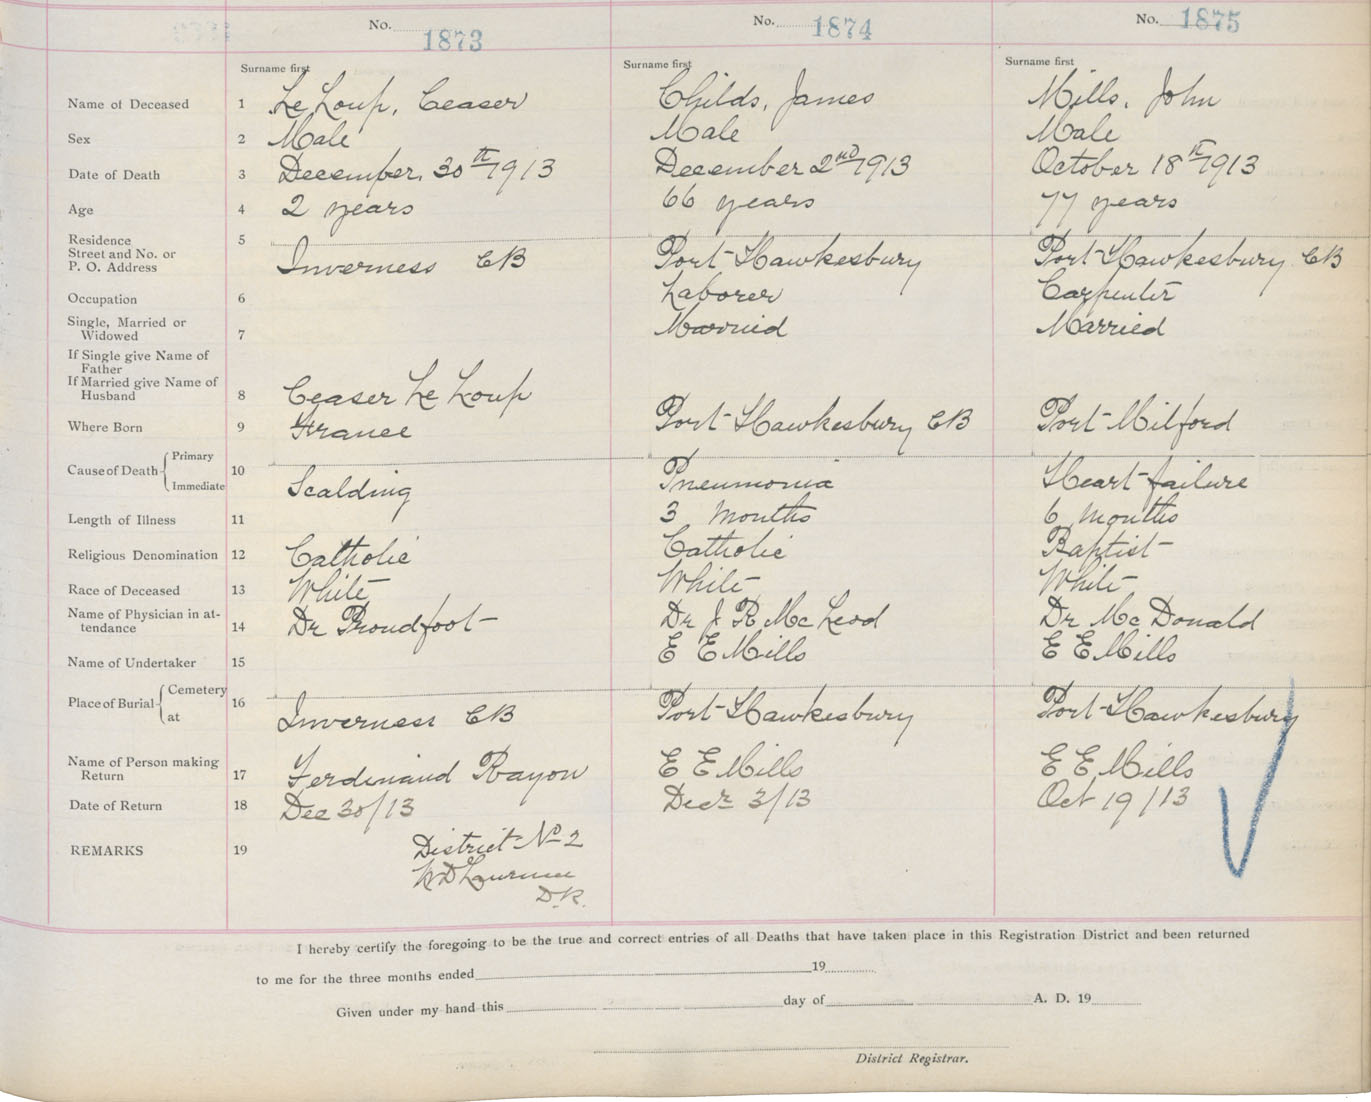 No. 1873 No. 1874 No. 1875
Surname first Surname first Surname first
Name of Deceased 1 Le Loup, Ceaser Childs, James Mills, John
Sex 2 Male Male Male
Date of Death 3 December 30th 1913 December 2nd 1913 October 18th 1913
Age 4 2 years 66 years 77 years
Residence 5
Street and No. or
P. O. Address Inverness CB Port Hawkesbury Port Hawkesbury CB
Occupation 6 Laborer Carpenter
Single, Married or
Widowed 7 Married Married
If Single give Name of
Father
If Married give Name of
Husband 8 Ceaser Le Loup
Where Born 9 France Port Hawkesbury CB Port Milford
Cause of Death { Primary
10 Scalding Pneumonia Heart failure
Immediate
Length of Illness 11 3 months 6 months
Religious Denomination 12 Catholic Catholic Baptist
Race of Deceased 13 White White White
Name of Physician in at-
tendance 14 Dr Proudfoot Dr J R McLeod Dr McDonald
Name of Undertaker 15 E E Mills E E Mills
Place of Burial { Cemetery
16
at Inverness CB Port Hawkesbury Port Hawkesbury
Name of Person making
Return 17 Ferdinand Rayon E E Mills E E Mills
Date of Return 18 Dec 30/13 Decr 3/13 Oct 19/13
REMARKS 19 District No 2
D.R.
I hereby certify the foregoing to be the true and correct entries of all Deaths that have taken place in this Registration District and been returned
to me for the three months ended 19
Given under my hand this day of A. D. 19
District Registrar.